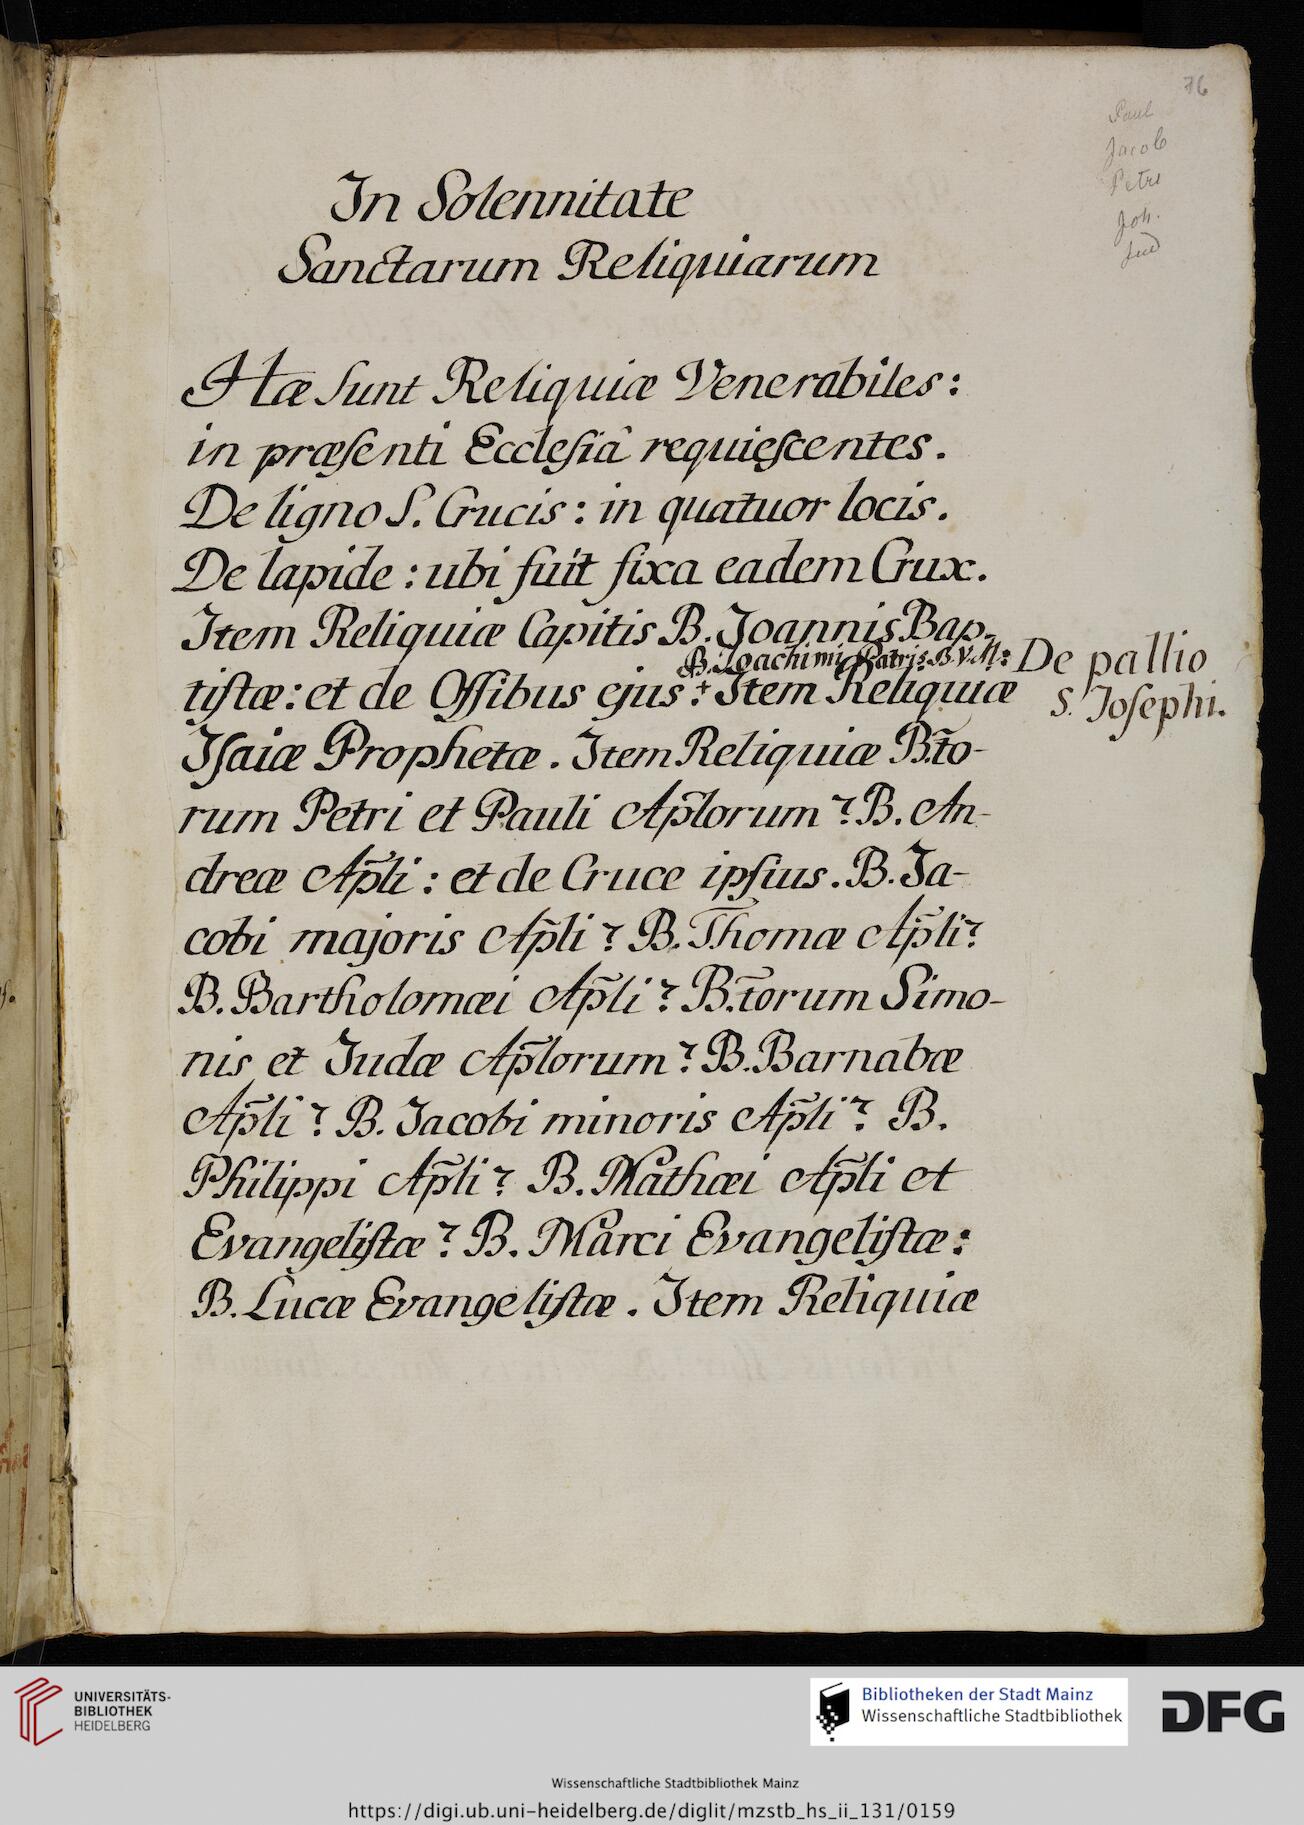 76
Paul
Jacob
Petri
Joh.
Jud
In Solennitate
Sanctarum Reliquiarum
Hæ sunt Reliquiæ Venerabiles:
in præſenti Eccleſiâ requieſcentes.
De ligno S. Crucis: in quatuor locis.
De lapide: ubi fuit fixa eadem Crux.
Item Reliquiæ Capitis B. Joannis Bap-
B. Joachimi Patris B.V.M: De pallio
tiſtæ: et de Oſſibus ejus: + Item Reliquiæ S. Joſephi.
Jſaiæ Prophetæ. Item Reliquiæ B.t̄o-
rum Petri et Pauli Ap̄lorum? B. An-
dreæ Ap̄li: et de Cruce ipſius. B. Ja-
cobi majoris Ap̄li? B. Thomæ Ap̄li?
B. Bartholomæi Ap̄li? B.t̄orum Simo-
nis et Judæ Ap̄lorum? B. Barnabæ
Ap̄li? B. Jacobi minoris Ap̄li? B.
Philippi Ap̄li? B. Mathæi Ap̄li et
Evangeliſtæ? B. Marci Evangeliſtæ:
B. Lucæ Evangeliſtæ. Item Reliquiæ
UNIVERSITÄTS-
BIBLIOTHEK
HEIDELBERG
Bibliotheken der Stadt Mainz
Wissenschaftliche Stadtbibliothek
DFG
Wissenschaftliche Stadtbibliothek Mainz
https://digi.ub.uni-heidelberg.de/diglit/mzstb_hs_ii_131/0159